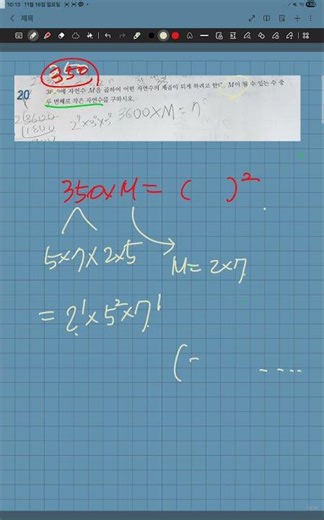 10:13 11월 16일 일요일
제목
350
20 에 자연수 M을 곱하여 어떤 자연수의 제곱이 되게 하려고 한다. M이 될 수 있는 수 중
두 번째로 작은 자연수를 구하시오.
3600×M=
350×M=( )²
5×7×2×5
M=2×7
=2¹×5²×7¹
(
....